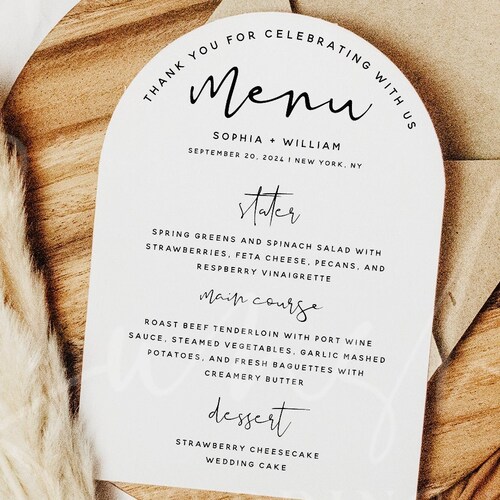 THANK YOU FOR CELEBRATING WITH US
Menu
SOPHIA + WILLIAM
SEPTEMBER 20, 2024 | NEW YORK, NY
stater
SPRING GREENS AND SPINACH SALAD WITH
STRAWBERRIES, FETA CHEESE, PECANS, AND
RESPBERRY VINAIGRETTE
main course
ROAST BEEF TENDERLOIN WITH PORT WINE
SAUCE, STEAMED VEGETABLES, GARLIC MASHED
POTATOES, AND FRESH BAGUETTES WITH
CREAMERY BUTTER
dessert
STRAWBERRY CHEESECAKE
WEDDING CAKE